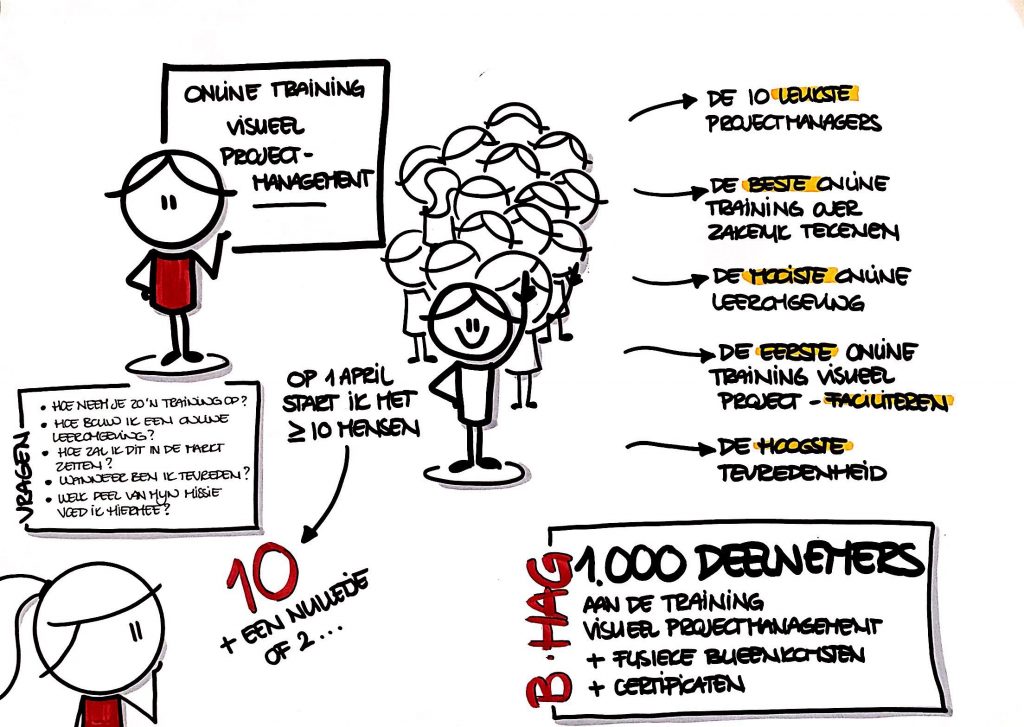 ONLINE TRAINING
VISUEEL
PROJECT-
MANAGEMENT
DE 10 LEUKSTE
PROJECTMANAGERS
DE BESTE ONLINE
TRAINING OVER
ZAKELIJK TEKENEN
DE MOOISTE ONLINE
LEEROMGEVING
DE EERSTE ONLINE
TRAINING VISUEEL
PROJECT-FACILITEREN
DE HOOGSTE
TEVREDENHEID
OP 1 APRIL
START IK MET
≥ 10 MENSEN
10
+ EEN NULLETJE
OF 2...
VRAGEN
• HOE NEEM JE ZO'N TRAINING OP?
• HOE BOUW IK EEN ONLINE
LEEROMGEVING?
• HOE ZAL IK DIT IN DE MARKT
ZETTEN?
• WANNEER BEN IK TEVREDEN?
• WELK DEEL VAN MIJN MISSIE
VOED IK HIERMEE?
B·HAG
1.000 DEELNEMERS
AAN DE TRAINING
VISUEEL PROJECTMANAGEMENT
+ FYSIEKE BIJEENKOMSTEN
+ CERTIFICATEN